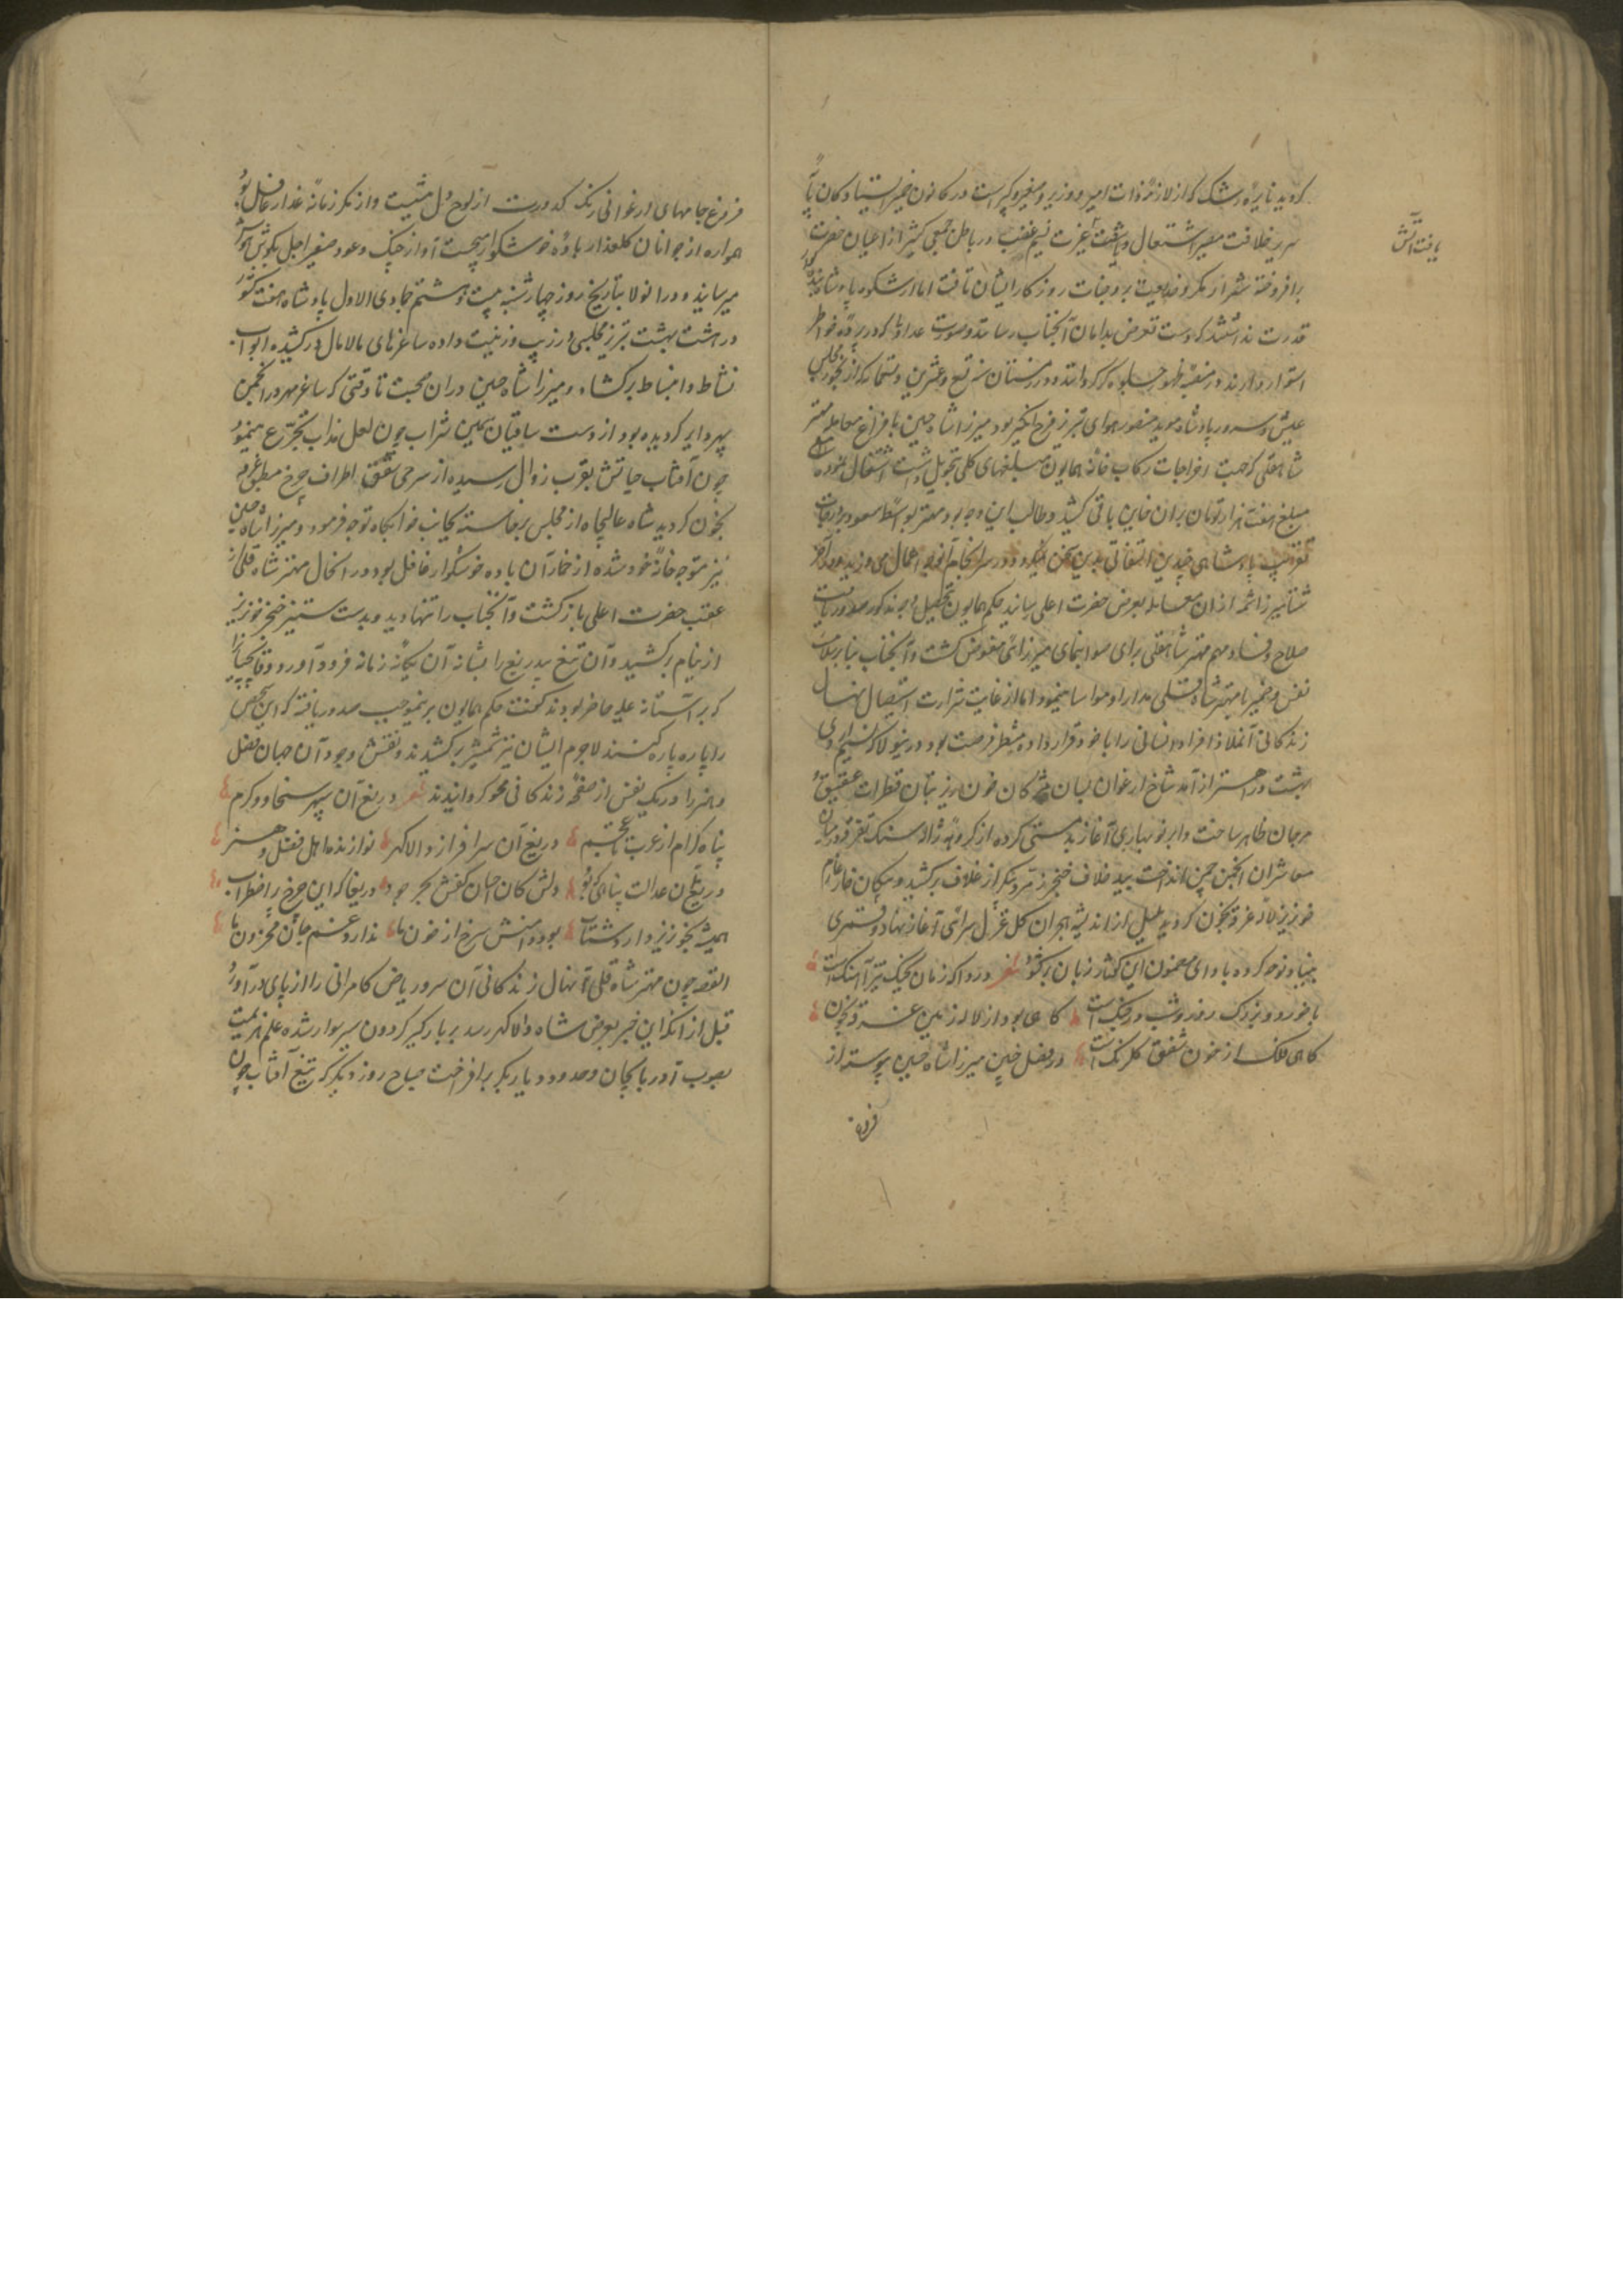 کردید نایره رشک که از لازمه ذات امیر و وزیر و صغیر و کبیر است در کانون ضمیر ایستادکان پایه
سریر خلافت مصیر اشتعال یافت آتش غیرت نسیم غضب در باطن جمعی کثیر از اعیان حضرت
یافت آتش
برافروخته شرر از مکر و خدیعت بر وجنات روزکار ایشان تافت اما از شکوه پادشاه
قدرت نداشتند که دست تعرض بدامان آنجناب رسانند و صورت عداوتی که در پرده خواطر
استوار دارند در منصه ظهور جلوه کر کردانند و در زمستان سنه تسع و عشرین و تسعمایه که از بخور مجلس
عیش و سرور پادشاه موید منصور هوای تبریز فرح انکیز بود میرزا شاه حسین بافراغ معامله مهتر
شاه قلی که جهت اخراجات رکاب خانه همایون مبلغهای کلی تحویل داشت اشتغال نموده
مبلغ هفت هزار تومان بران خاین باقی کشید و طالب این وجه بود و مهتر بواسطه صعود بر درجات
تقرب پادشاهی چندین التفاتی بدین سخن نمیکرد و در سرانجام آن وجه اهمال می ورزید و در آخر
شتا میرزا شمه از ان معامله بعرض حضرت اعلی رسانید حکم همایون بتحصیل وجه مذکور صدور یافت
صلاح و فساد مهم مهتر شاه قلی برای صوابنمای میرزائی مفوض کشت و آنجناب بنابر سلامت
نفس و ضمیر با مهتر شاه قلی مدارا و مواسا مینمود اما او از غایت شرارت استیصال نهال
زندکانی آنملاذ افراد انسانی را با خود قرار داده منتظر فرصت بود و درینولا که نسیم اردی
بهشت در اهتزاز آمد شاخ ارغوان بسان مژکان خون ریز بتان قطرات عقیق و
مرجان ظاهر ساخت و ابر نوبهاری آغاز بد مستی کرده از کروهه ژاله سنک تفرقه در میان
معاشران انجمن چمن انداخت بید خلاف خنجر زمردپیکر از غلاف برکشید و پیکان خار
خونریز لاله غرقه بخون کردید بلبل از اندیشه هجران کل غزل سرائی آغاز نهاد و قمری
بنیاد نوحه کرده بادای مضمون این کفتار زبان برکشود شعر دردا که زمان بجنک تیز آهنک است
با خورد و بزرک روز و شب در جنک است کاهی بود از لاله زمین غرقه بخون
کاهی فلک از خون شفق کلرنک است در فصل چنین میرزا شاه حسین پیوسته از
فروغ
فروغ جامهای ارغوانی رنک کدورت از لوح دل میشست و از مکر زمانه غدار غافل بود
همواره از جوانان کلعذار باده خوشکوار میجست آواز چنک و عود صفیر اجل بکوش هوش
میرسانید و درانولا بتاریخ روز چهار شنبه بیست و هشتم جمادی الاول پادشاه هفت کشور
در هشت بهشت تبریز مجلسی در زیب و زینت داده ساغرهای مالامال درکشیده ابواب
نشاط و انبساط برکشاد و میرزا شاه حسین دران صحبت تا وقتی که ساغر مهر در انجمن
سپهر دایر کردیده بود از دست ساقیان سیمین شراب چون لعل مذاب تجرع مینمود
چون آفتاب حیاتش بقرب زوال رسیده از سرخی شفق اطراف چرخ مطبق غرقه
بخون کردید شاه عالیجاه از مجلس برخاسته بجانب خوابکاه توجه فرمود و میرزا شاه حسین
نیز متوجه خانه خود شده از خمار آن باده خوشکوار غافل بود در انحال مهتر شاه قلی از
عقب حضرت اعلی بازکشت و آنجناب را تنها دید و بدست ستیز خنجر خونریز
از نیام برکشید و آن تیغ بیدریغ را بشانه آن یکانه زمانه فرود آورد و قاپچیانرا
که بر آستانه علیه حاضر بودند کفت حکم همایون برینموجب صدور یافته که این شخص
را پاره پاره کنند لاجرم ایشان نیز شمشیر برکشیدند و نقش وجود آن جهان فضل
و هنر را در یک نفس از صفحه زندکانی محو کردانیدند شعر دریغ آن سپهر سخا و کرم
پناه کرام از عرب تا عجم دریغ آن سرافراز والاکهر نوازنده اهل فضل و هنر
دریغ آن عدالت پناهی که بود دلش کان احسان کفش بحر جود دریغا که این چرخ پر اضطراب
همیشه بخونریز دارد شتاب بود دامنش سرخ از خون ما ندارد غم جان محزون ما
القصه چون مهتر شاه قلی نهال زندکانی آن سرو ریاض کامرانی را از پای درآورد
قبل از انکه این خبر بعرض شاه والاکهر رسد بر بارکیر کردون سیر سوار شده علم هزیمت
بصوب آذربایجان و حدود دیاربکر برافراخت صباح روز دیکر که تیغ آفتاب چون